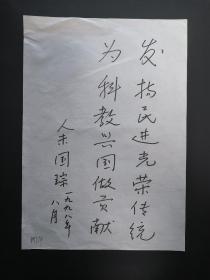 发扬民进光荣传统
为科教兴国做贡献
余国琮
一九九八年
八月